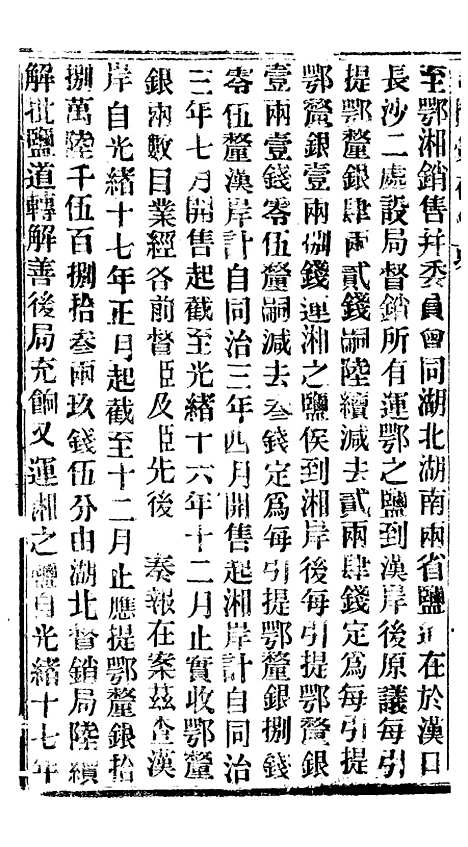 至鄂湘銷售并委員會同湖北湖南兩省鹽道在於漢口
長沙二處設局督銷所有運鄂之鹽到漢岸後原議每引
提鄂釐銀肆兩貳錢嗣陸續減去貳兩肆錢定爲每引提
鄂釐銀壹兩捌錢運湘之鹽俟到湘岸後每引提鄂釐銀
壹兩壹錢零伍釐嗣減去叁錢定爲每引提鄂釐銀捌錢
零伍釐漢岸計自同治三年四月開售起湘岸計自同治
三年七月開售起截至光緒十六年十二月止實收鄂釐
銀兩數目業經各前督臣及臣先後　奏報在案茲查漢
岸自光緒十七年正月起截至十二月止應提鄂釐銀拾
捌萬陸千伍百捌拾叁兩玖錢伍分由湖北督銷局陸續
解批鹽道轉解善後局充餉又運湘之鹽自光緒十七年